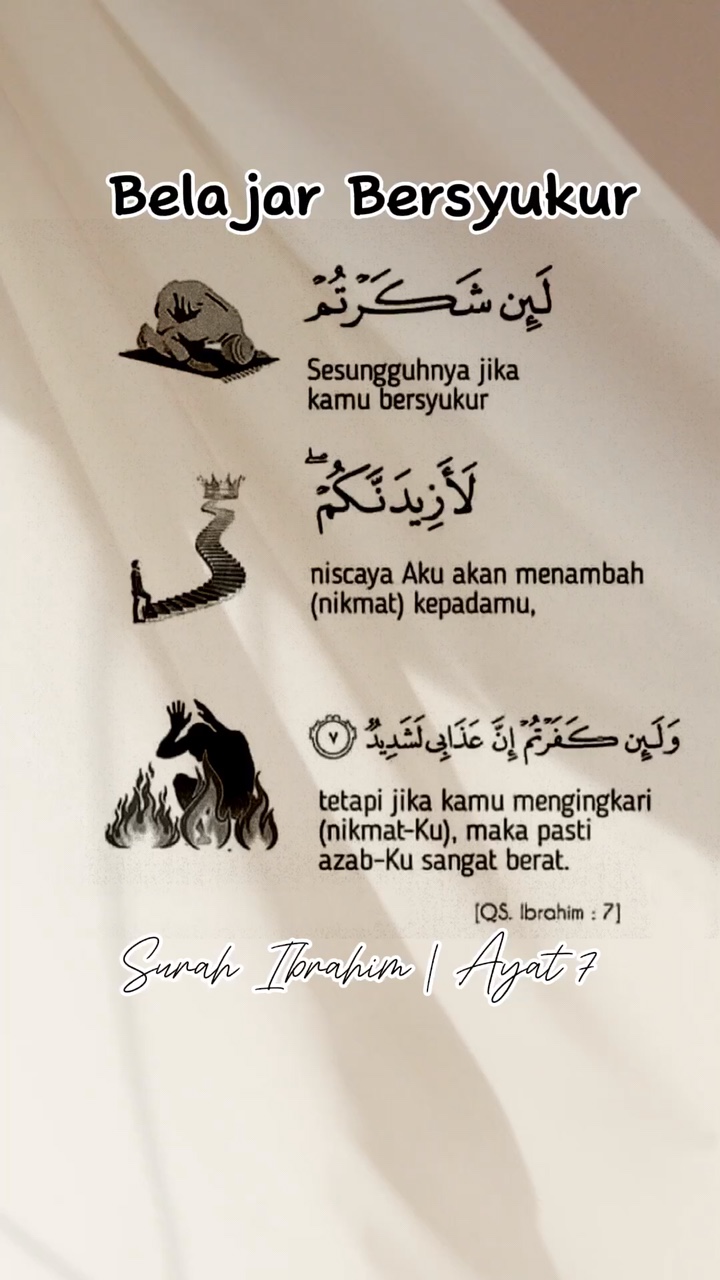 Belajar Bersyukur
لَئِن شَكَرْتُمْ
Sesungguhnya jika
kamu bersyukur
لَأَزِيدَنَّكُمْ ۖ
niscaya Aku akan menambah
(nikmat) kepadamu,
وَلَئِن كَفَرْتُمْ إِنَّ عَذَابِى لَشَدِيدٌ ٧
tetapi jika kamu mengingkari
(nikmat-Ku), maka pasti
azab-Ku sangat berat.
[QS. Ibrahim : 7]
Surah Ibrahim | Ayat 7